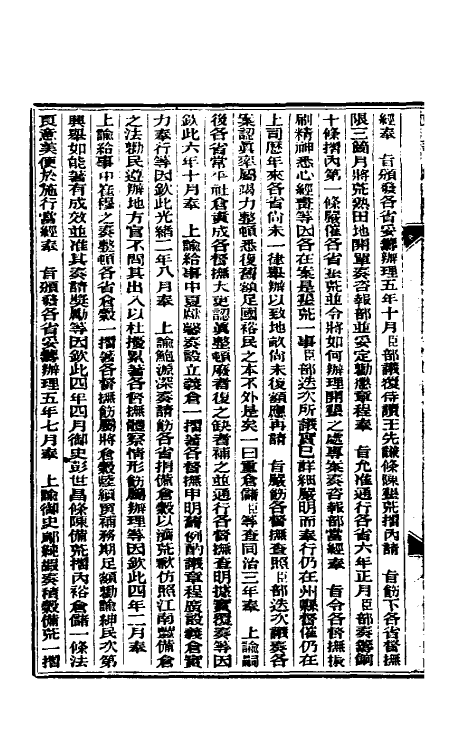 經奉　旨頒發各省妥籌辦理五年十月臣部議復侍讀王先謙條陳墾荒摺內請　旨飭下各省督撫
限三箇月將荒熟田地開單奏咨報部並妥定勸懲章程奉　旨允准通行各省六年正月臣部奏籌餉
十條摺內第一條嚴催各省墾荒並令將如何辦理開墾之處專案奏咨報部當經奉　旨令各督撫振
刷精神悉心經畫等因各在案是墾荒一事臣部迭次所議實已詳細嚴明而奉行仍在州縣督催仍在
上司歷年來各省尚未一律舉辦以致地畝尚未復額應再請　旨嚴飭各督撫查照臣部迭次議奏各
案認真梁屬竭力整頓悉復舊額足國裕民之本不外是矣一曰重倉儲臣等查同治三年奉　上諭嗣
後各省常平社倉責成各督撫大吏認真整頓廢者復之缺者補之並通行各督撫查明據實覆奏等因
欽此六年十月奉　上諭給事中夏獻馨奏設立義倉一摺著各督撫申明舊例酌議章程廣設義倉實
力奉行等因欽此光緒二年八月奉　上諭鮑源深奏請飭各省捐備倉穀以濟荒歉仿照江南豐備倉
之法勸民遵辦地方官不問其出入以杜擾累著各督撫體察情形飭屬辦理等因欽此四年二月奉
上諭給事中崔穆之奏整頓各省倉穀一摺著各督撫飭屬將倉穀陸續買補務期足額勸諭紳民次第
興舉如能著有成效並准其奏請獎勵等因欽此四年四月御史彭世昌條陳備荒摺內裕倉儲一條法
良意美便於施行當經奉　旨頒發各省妥籌辦理五年七月奉　上諭御史鄔純嘏奏積穀備荒一摺